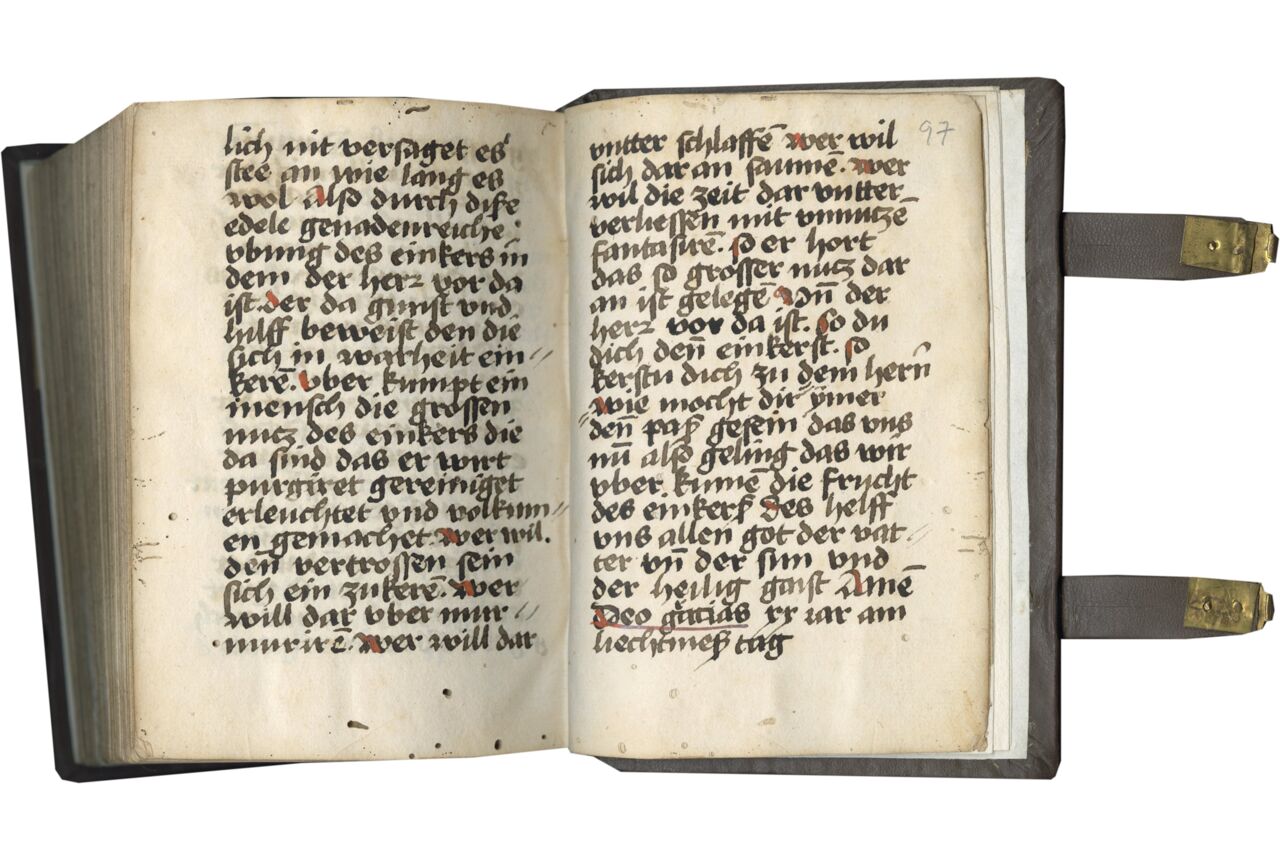 lich nit versaget es
stee an wie lang es
wol Also durch dise
edele genadenreiche
vbung des einkers in
dem der herz vor da
ist. der da gunst vnd
hilff beweist den die
sich in warheit ein⸗
kerē. vber kumpt ein
mensch die grossen
nutz des einkers die
da sind das er wirt
purgiret gereiniget
erleuchtet vnd volkum⸗
en gemachet. wer wil.
den̄ vertrossen sein
sich ein zukerē. Wer
will dar vber mur⸗
murirē. Wer will dar
97
vntter schlaffē wer wil
sich dar an saumē. wer
wil die zeit dar vntter
verliessen mit vnnutzē
fantasirē. so er hort
das so grosser nutz dar
an ist gelegē Vn̄ der
herz vor da ist. So du
dich den̄ einkerst. so
kerstu dich zu dem hern̄
wie mocht dir ymer
den̄ paß gesein das vns
nū also geling das wir
vber kumē die frucht
des einkerß des helff
vns allen got der vat⸗
ter vn̄ der sun vnd
der heilig gaist Amē
Deo gracias xx iar am
liechtmeß tag